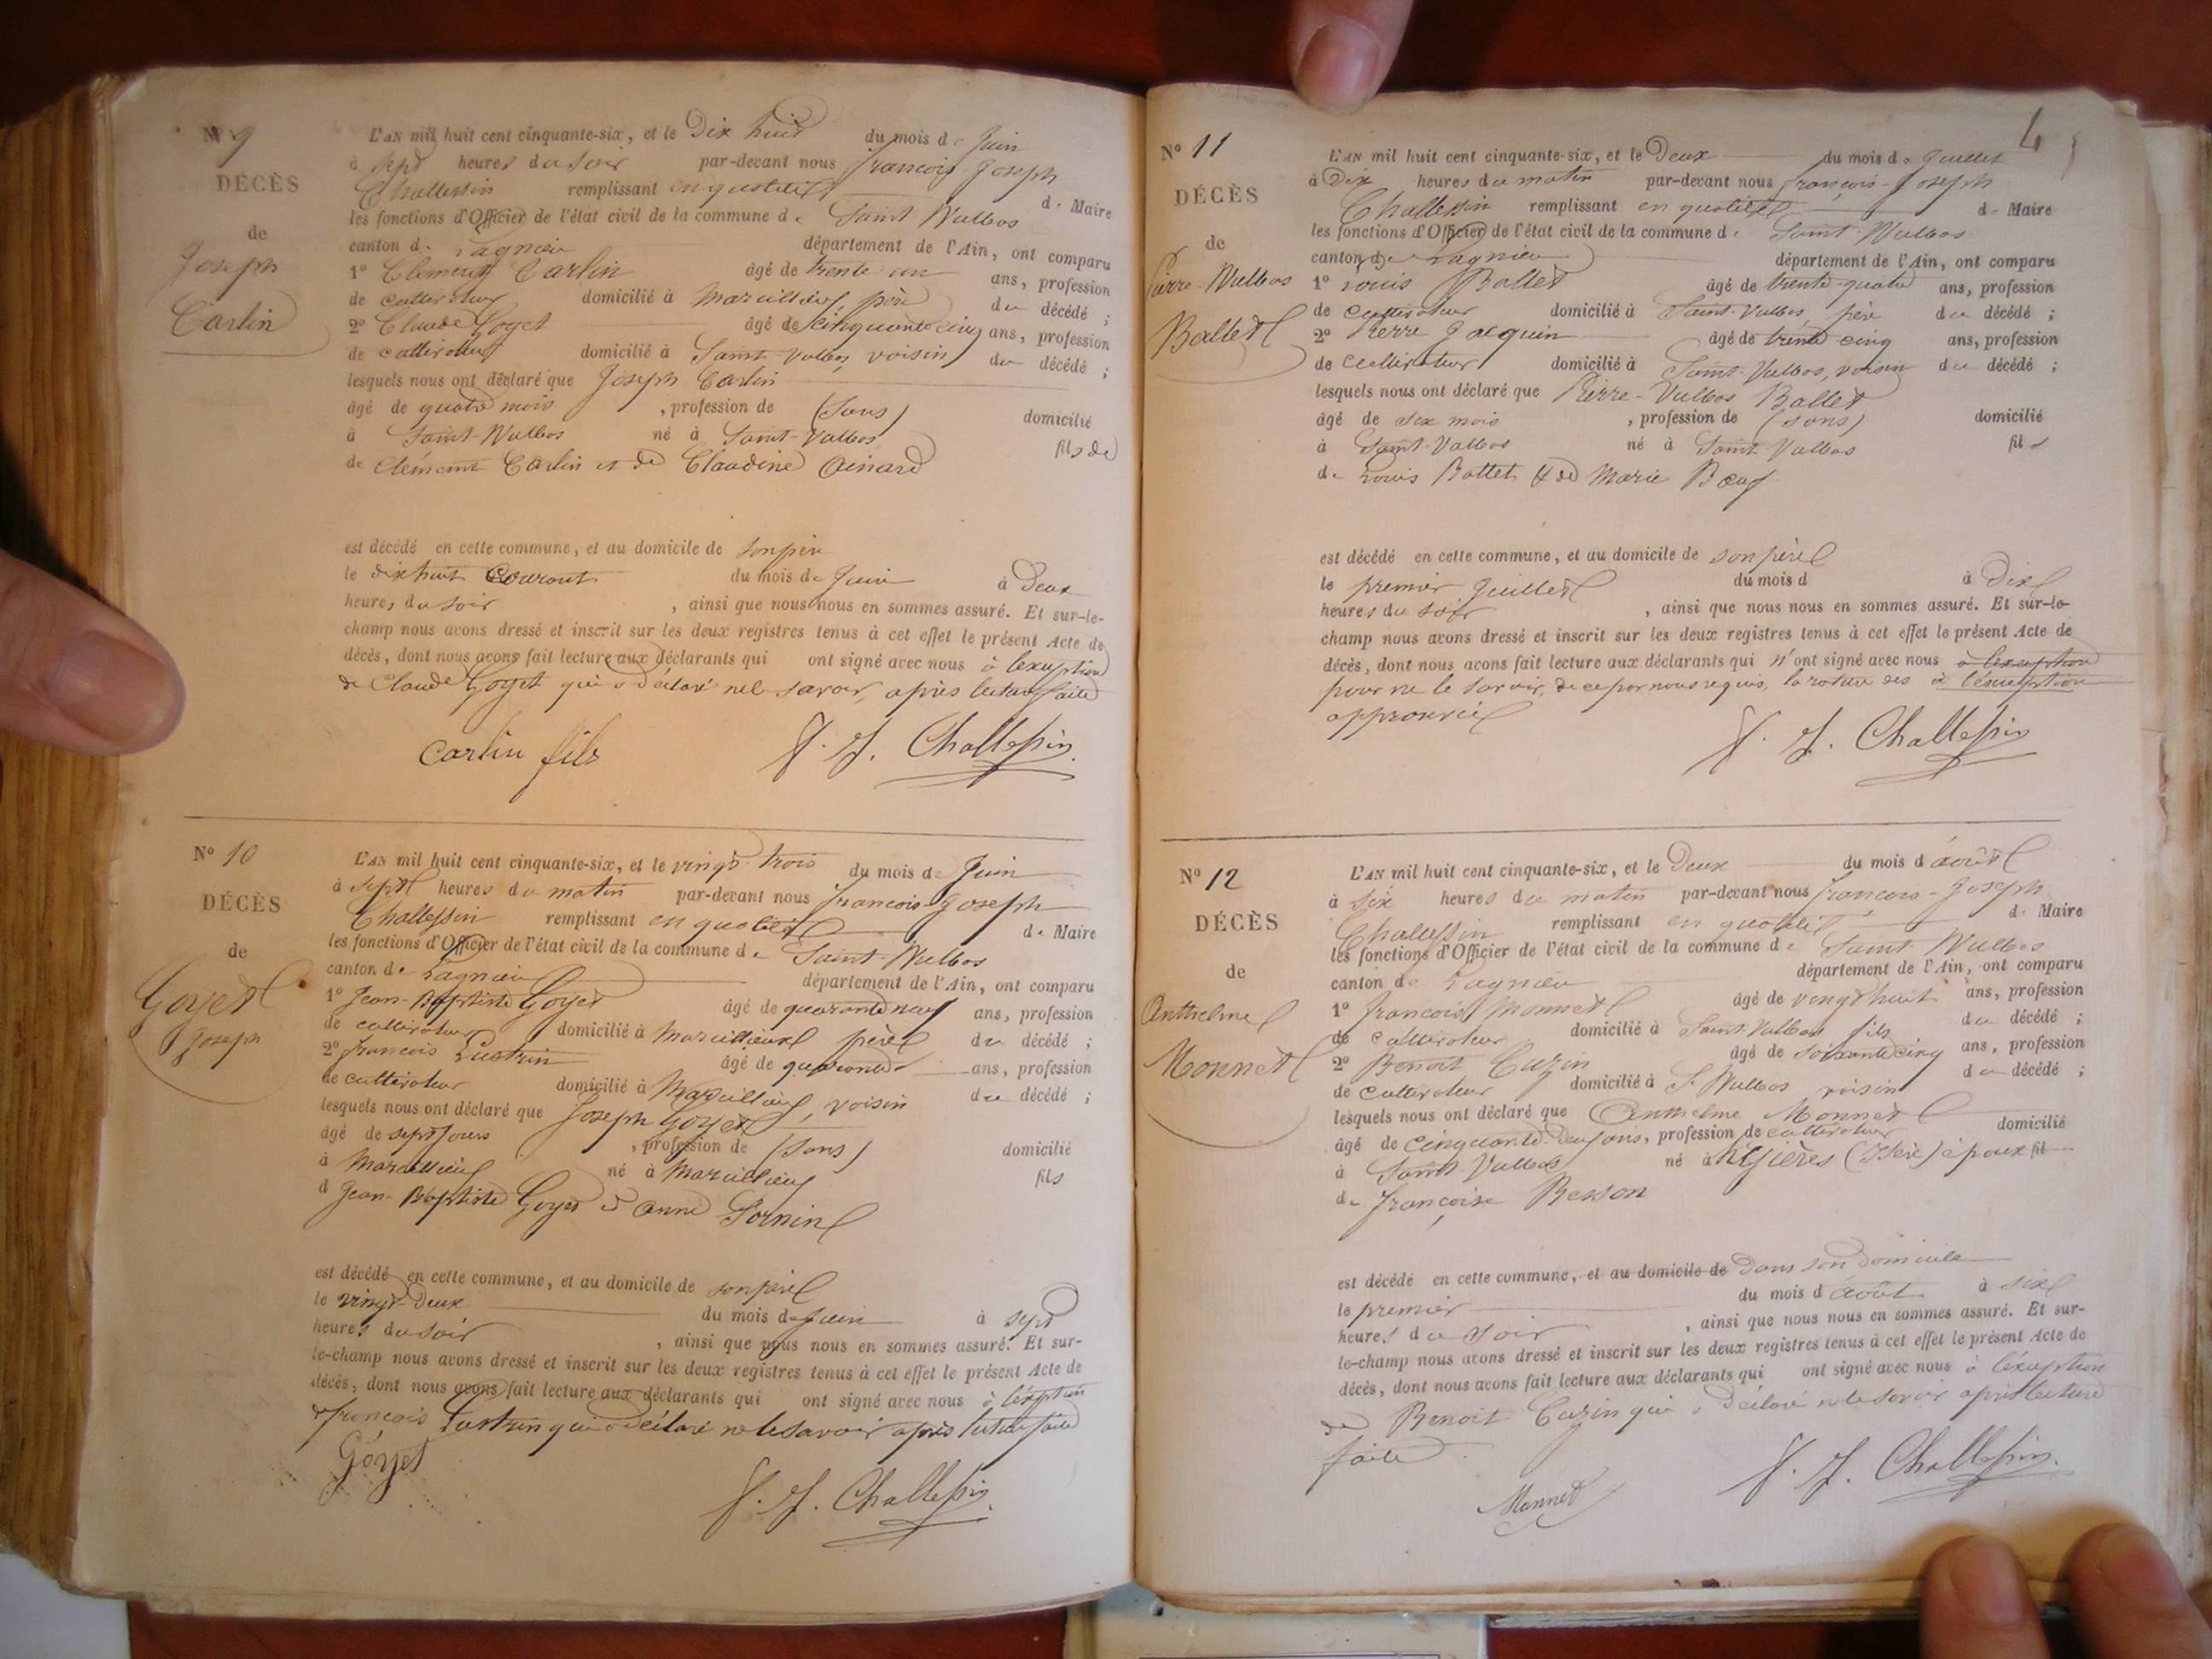 N° 9
DÉCÈS
de
Joseph
Carlin
L'AN mil huit cent cinquante-six, et le Dix huit du mois de Juin
à sept heures du soir par-devant nous françois Joseph
Challessin remplissant en qualité de Maire
les fonctions d'Officier de l'état civil de la commune de Saint Vulbas
canton de Lagnieu département de l'Ain, ont comparu
1° Clément Carlin âgé de trente un ans, profession
de cultivateur domicilié à Marcillieux, père du décédé ;
2° Claude Goyet âgé de cinquante cinq ans, profession
de cultivateur domicilié à Saint-Vulbas, voisin du décédé ;
lesquels nous ont déclaré que Joseph Carlin
âgé de quatre mois , profession de (sans) domicilié
à Saint-Vulbas né à Saint-Vulbas fils de
de Clément Carlin et de Claudine Ainard
est décédé en cette commune, et au domicile de son père
le dix huit courant du mois de Juin à Deux
heures du soir , ainsi que nous nous en sommes assuré. Et sur-le-
champ nous avons dressé et inscrit sur les deux registres tenus à cet effet le présent Acte de
décès, dont nous avons fait lecture aux déclarants qui ont signé avec nous à l'exception
de Claude Goyet qui a déclaré ne le savoir, après lecture faite
Carlin fils f. J. Challessin
N° 10
DÉCÈS
de
Goyet
Joseph
L'AN mil huit cent cinquante-six, et le vingt-trois du mois de Juin
à sept heures du matin par-devant nous françois-Joseph
Challessin remplissant en qualité de Maire
les fonctions d'Officier de l'état civil de la commune de Saint-Vulbas
canton de Lagnieu département de l'Ain, ont comparu
1° Jean-Baptiste Goyet âgé de quarante neuf ans, profession
de cultivateur domicilié à Marcillieux père du décédé ;
2° françois Lustrin âgé de quarante ans, profession
de cultivateur domicilié à Marcillieux, voisin du décédé ;
lesquels nous ont déclaré que Joseph Goyet
âgé de sept jours , profession de (sans) domicilié
à Marcillieux né à Marcillieux fils
d Jean-Baptiste Goyet & Anne Sornin
est décédé en cette commune, et au domicile de son père
le vingt-Deux du mois de Juin à sept
heures du soir , ainsi que nous nous en sommes assuré. Et sur-
le-champ nous avons dressé et inscrit sur les deux registres tenus à cet effet le présent Acte de
décès, dont nous avons fait lecture aux déclarants qui ont signé avec nous à l'exception
de françois Lustrin qui a déclaré ne le savoir après lecture faite
Goyet f. J. Challessin
4
N° 11
DÉCÈS
de
Pierre-Vulbas
Ballet
L'AN mil huit cent cinquante-six, et le Deux du mois de Juillet
à Dix heures du matin par-devant nous françois-Joseph
Challessin remplissant en qualité de Maire
les fonctions d'Officier de l'état civil de la commune de Saint-Vulbas
canton de Lagnieu département de l'Ain, ont comparu
1° Louis Ballet âgé de trente-quatre ans, profession
de cultivateur domicilié à Saint-Vulbas, père du décédé ;
2° Pierre Jacquin âgé de trente cinq ans, profession
de cultivateur domicilié à Saint-Vulbas, voisin du décédé ;
lesquels nous ont déclaré que Pierre-Vulbas Ballet
âgé de six mois , profession de (sans) domicilié
à Saint-Vulbas né à Saint-Vulbas fils
de Louis Ballet & de Marie Bœuf
est décédé en cette commune, et au domicile de son père
le premier Juillet du mois d à Dix
heures du soir , ainsi que nous nous en sommes assuré. Et sur-le-
champ nous avons dressé et inscrit sur les deux registres tenus à cet effet le présent Acte de
décès, dont nous avons fait lecture aux déclarants qui n'ont signé avec nous à l'exception
pour ne le savoir, de ce par nous requis, la rature des à l'exception
approuvée
f. J. Challessin
N° 12
DÉCÈS
de
Anthelme
Monnet
L'AN mil huit cent cinquante-six, et le Deux du mois d août
à six heures du matin par-devant nous françois-Joseph
Challessin remplissant en qualité de Maire
les fonctions d'Officier de l'état civil de la commune de Saint Vulbas
canton de Lagnieu département de l'Ain, ont comparu
1° françois Monnet âgé de vingt huit ans, profession
de cultivateur domicilié à Saint-Vulbas fils du décédé ;
2° Benoit Cuzin âgé de soixante cinq ans, profession
de cultivateur domicilié à St Vulbas voisin du décédé ;
lesquels nous ont déclaré que Anthelme Monnet
âgé de cinquante-deux ans, profession de cultivateur domicilié
à Saint Vulbas né à (Isère) époux fil
de françoise Besson
est décédé en cette commune, et au domicile de Dans son domicile
le premier du mois d août à six
heures du soir , ainsi que nous nous en sommes assuré. Et sur-
le-champ nous avons dressé et inscrit sur les deux registres tenus à cet effet le présent Acte de
décès, dont nous avons fait lecture aux déclarants qui ont signé avec nous à l'exception
de Benoit Cuzin qui a déclaré ne le savoir après lecture
faite
Monnet f. J. Challessin